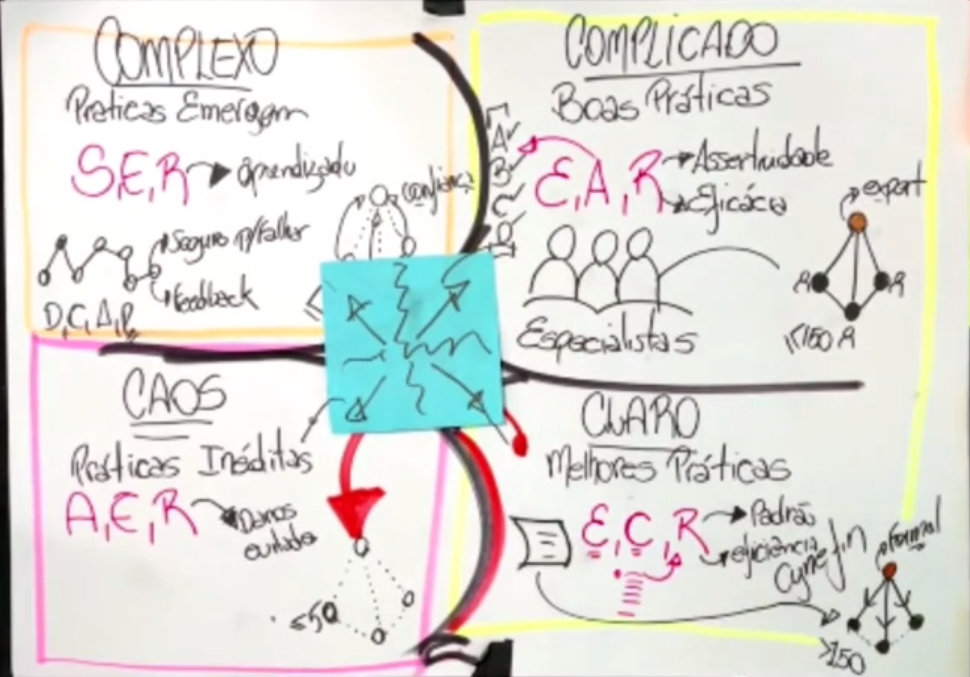 COMPLEXO
Praticas Emergem
S,E,R
aprendizado
confiança
Seguro p/ falhar
feedback
D,C,A,P
COMPLICADO
Boas Práticas
A
B
C
D
E,A,R
Assertividade
Eficácia
expert
R
R
Especialistas
150 R
CAOS
Práticas Inéditas
A,E,R
Danos
evitados
≤5
CLARO
Melhores Práticas
E,C,R
Padrão
eficiência
Cynefin
formal
>150